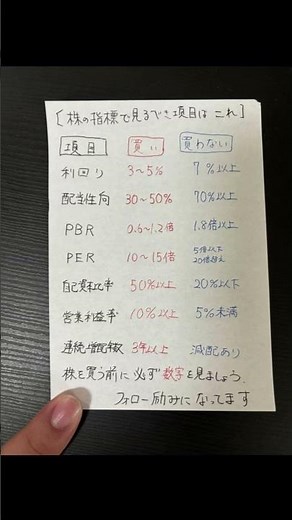 [株の指標で見るべき項目は これ]
項目 買い 買わない
利回り 3〜5% 7%以上
配当性向 30〜50% 70%以上
PBR 0.6〜1.2倍 1.8倍以上
PER 10〜15倍 5倍以下
20倍超え
自己資本比率 50%以上 20%以下
営業利益率 10%以上 5%未満
連続増配年数 3年以上 減配あり
株を買う前に必ず数字を見ましょう。
フォロー励みになってます